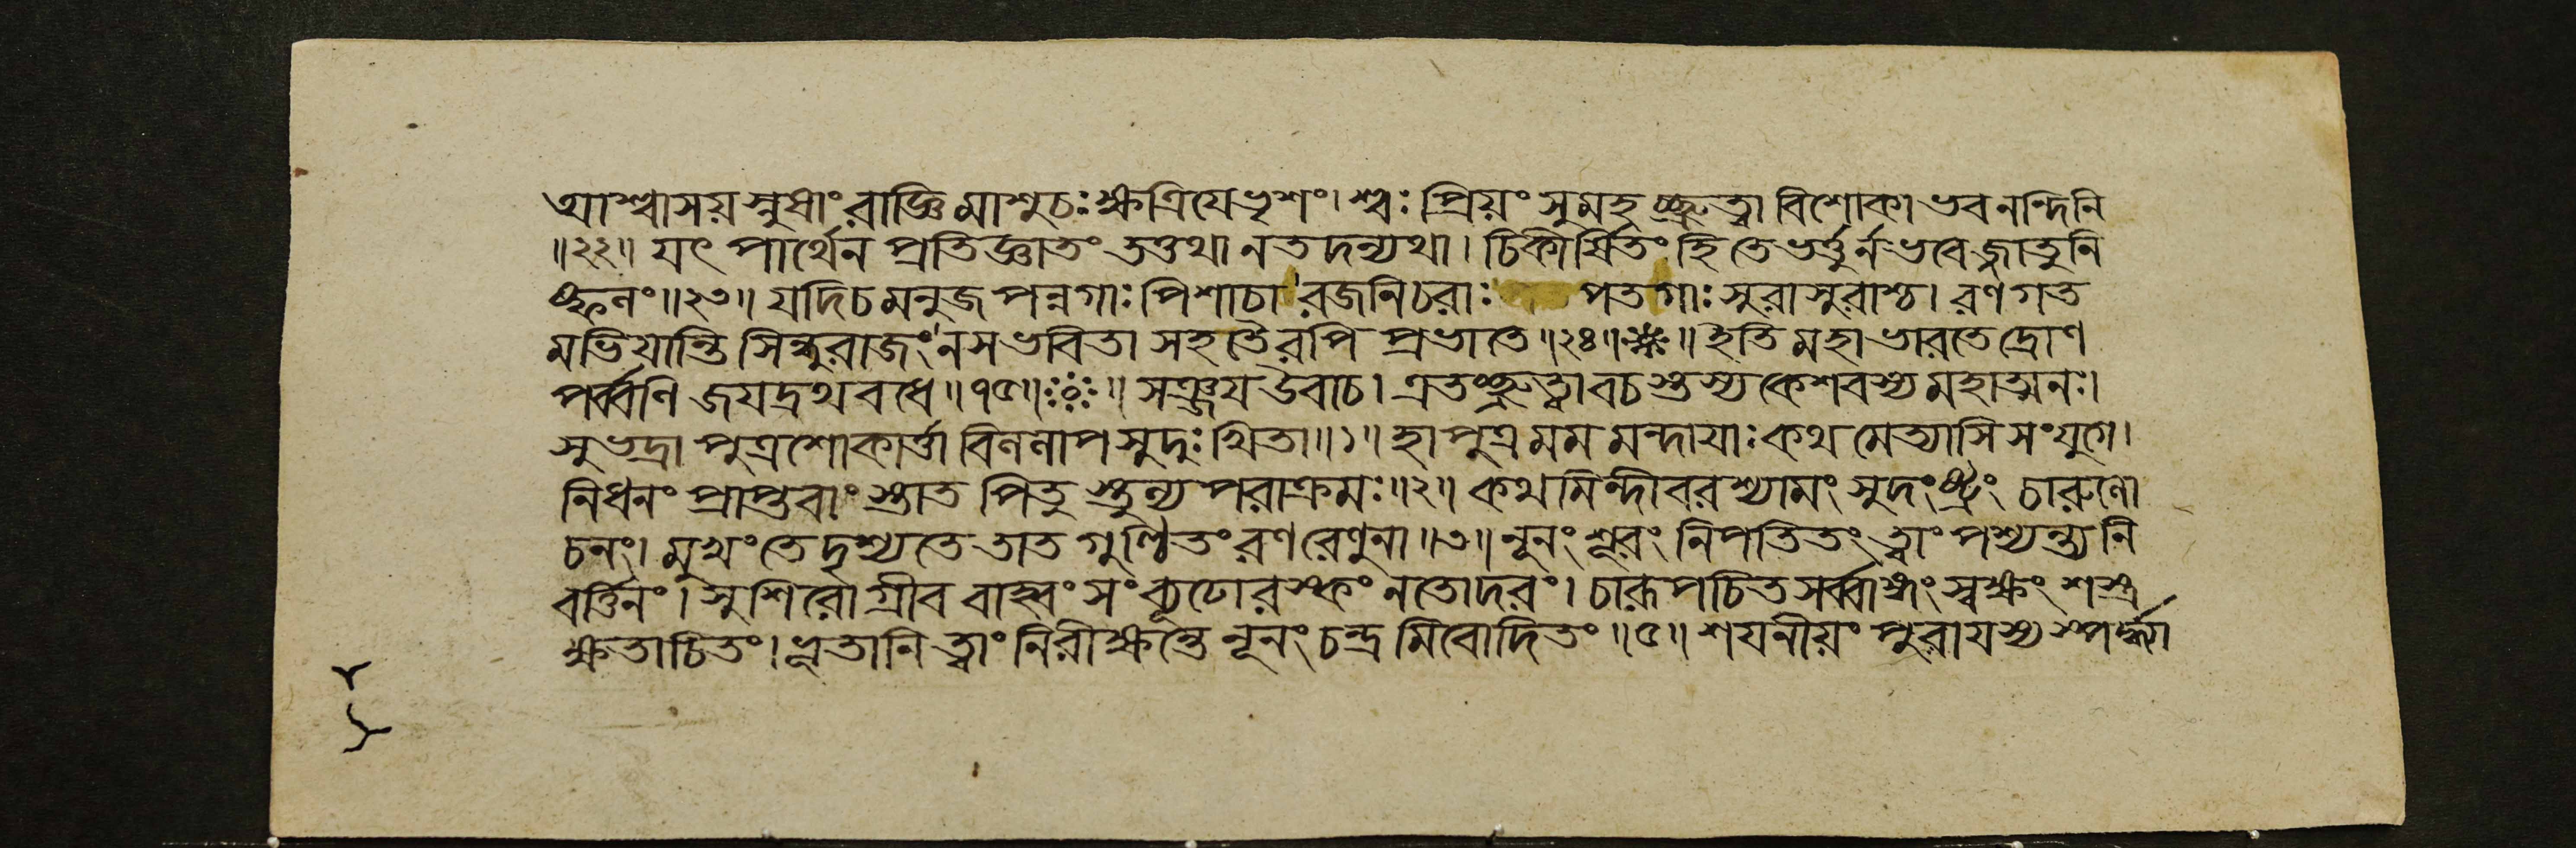 আশ্বাসয় স্নুষাং রাজ্ঞি মাশুচঃ ক্ষত্রিযে ভৃশং। শ্বঃ প্রিয়ং সুমহচ্ছ্রুত্বা বিশোকা ভব নন্দিনি
॥২২॥ যৎ পার্থেন প্রতিজ্ঞাতং তত্তথা ন তদন্যথা। চিকীর্ষিতং হি তে ভর্ত্তুর্ন ভবেজ্জাতু নি
ষ্ফলং॥২৩॥ যদি চ মনুজ পন্নগাঃ পিশাচা রজনিচরাঃ পতগাঃ সুরাসুরাশ্চ। রণগত
মভিযান্তি সিন্ধুরাজং ন স ভবিতা সহ তৈরপি প্রভাতে॥২৪॥ ॥ইতি মহাভারতে দ্রোণ
পর্ব্বণি জযদ্রথবধে॥৭৫॥ ॥ সঞ্জয উবাচ। এতচ্ছ্রুত্বা বচস্তস্য কেশবস্য মহাত্মনঃ।
সুভদ্রা পুত্রশোকার্ত্তা বিললাপ সুদুঃখিতা॥১॥ হা পুত্র মম মন্দাযাঃ কথমেত্যাসি সংযুগে।
নিধনং প্রাপ্তবাংস্তাত পিতুস্তুল্যপরাক্রমঃ॥২॥ কথমিন্দীবরশ্যামং সুদংষ্ট্রং চারুলো
চনং। মুখং তে দৃশ্যতে তাত গুণ্ঠিতং রণরেণুনা॥৩॥ নূনং শূরং নিপতিতং ত্বাং পশ্যন্ত্যনি
বর্ত্তিনং। সুশিরোগ্রীববাহ্বংসং ব্যূঢোরস্কং নতোদরং। চারূপচিতসর্ব্বাঙ্গং স্বক্ষং শস্ত্র
ক্ষতাচিতং। ভূতানি ত্বাং নিরীক্ষন্তে নূনং চন্দ্রমিবোদিতং॥৫॥ শযনীয়ং পুরা যস্য স্পর্দ্ধ্যা